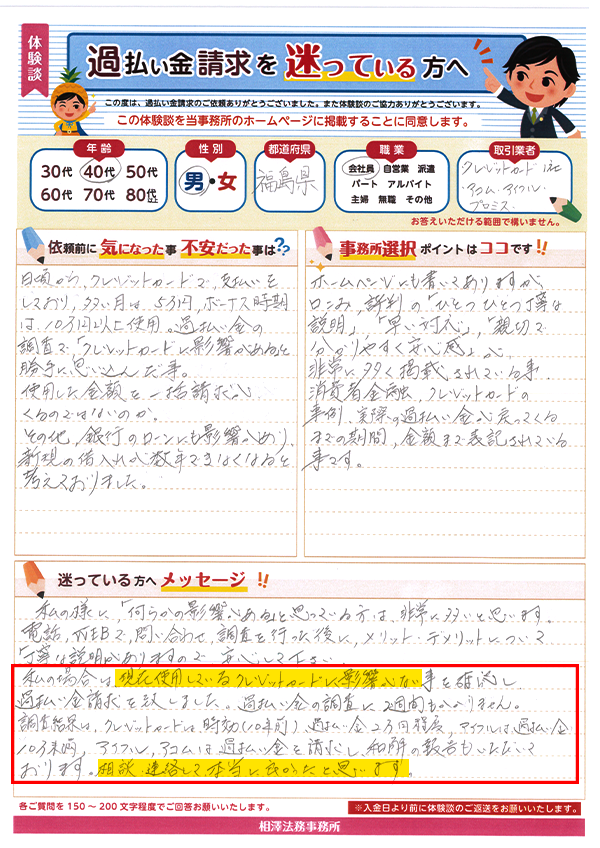 体験談
過払い金請求を迷っている方へ
この度は、過払い金請求のご依頼ありがとうございました。また体験談のご協力ありがとうございます。
この体験談を当事務所のホームページに掲載することに同意します。
年齢
30代 40代 50代
60代 70代 80代以上
性別
男・女
都道府県
福島県
職業
会社員 自営業 派遣
パート アルバイト
主婦 無職 その他
取引業者
クレジットカード1社
・アコム・アイフル・
プロミス
お答えいただける範囲で構いません。
依頼前に気になった事 不安だった事は??
日頃から、クレジットカードで、支払いを
しており、多い月は5万円、ボーナス時期
は、10万円以上使用。過払い金の
調査で「クレジットカードに影響があると
勝手に思い込んだ事。
使用した金額を一括請求が
くるのではないのか。
その他、銀行のローンにも影響があり、
新規の借入れが数年できなくなると
考えておりました。
事務所選択ポイントはココです!!
ホームページにも書いてありますが、
口コミ、評判の「ひとつひとつ丁寧な
説明」、「早い対応」、「親切で
分かりやすく安心感」が
非常に多く掲載されている事、
消費者金融、クレジットカードの
事例、実際の過払い金が戻ってくる
までの期間、金額まで表記されている
事です。
迷っている方へメッセージ!!
私の様に、「何らかの影響があると思っている方は、非常に多いと思います。
電話、WEBで、問い合わせ、調査を行った後に、メリット・デメリットについて
丁寧な説明がありますので安心して下さい
私の場合は現在使用しているクレジットカードに影響がない事を確認し
過払い金請求を致しました。過払い金の調査に2週間もかかりません。
調査結果は、クレジットカードは、時効(10年前)過払い金2万円程度、アイフルは、過払い金
10万未満、アイフル、アコムは過払い金を請求し、和解の報告もいただいて
おります。相談、連絡して本当に良かったと思います。
各ご質問を150～200文字程度でご回答お願いいたします。
※入金日より前に体験談のご返送をお願いいたします。
相澤法務事務所